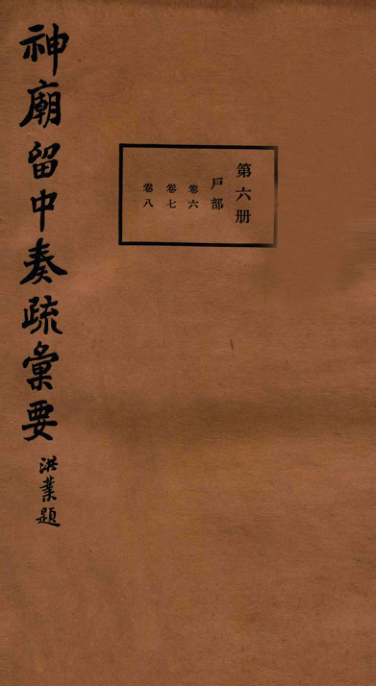 第六册
戶部
卷六
卷七
卷八
神廟留中奏疏彙要
洪業題